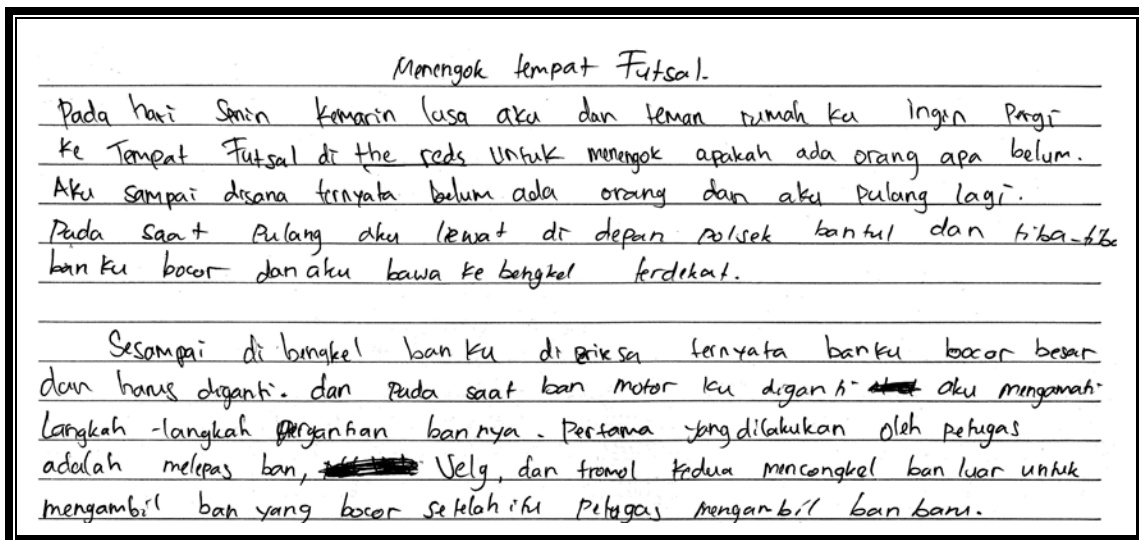 Menengok tempat Futsal.
Pada hari Senin kemarin lusa aku dan teman rumah ku ingin Pergi
ke Tempat Futsal di the reds untuk menengok apakah ada orang apa belum.
Aku sampai disana ternyata belum ada orang dan aku pulang lagi.
Pada saat Pulang aku lewat di depan polsek bantul dan tiba-tiba
ban ku bocor dan aku bawa ke bengkel terdekat.
Sesampai di bengkel ban ku di periksa ternyata banku bocor besar
dan harus diganti. dan Pada saat ban motor ku diganti aku mengamati
Langkah -langkah pergantian ban nya. Pertama yang dilakukan oleh petugas
adalah melepas ban, Velg, dan tromol kedua mencongkel ban luar untuk
mengambil ban yang bocor setelah itu petugas mengambil ban baru.